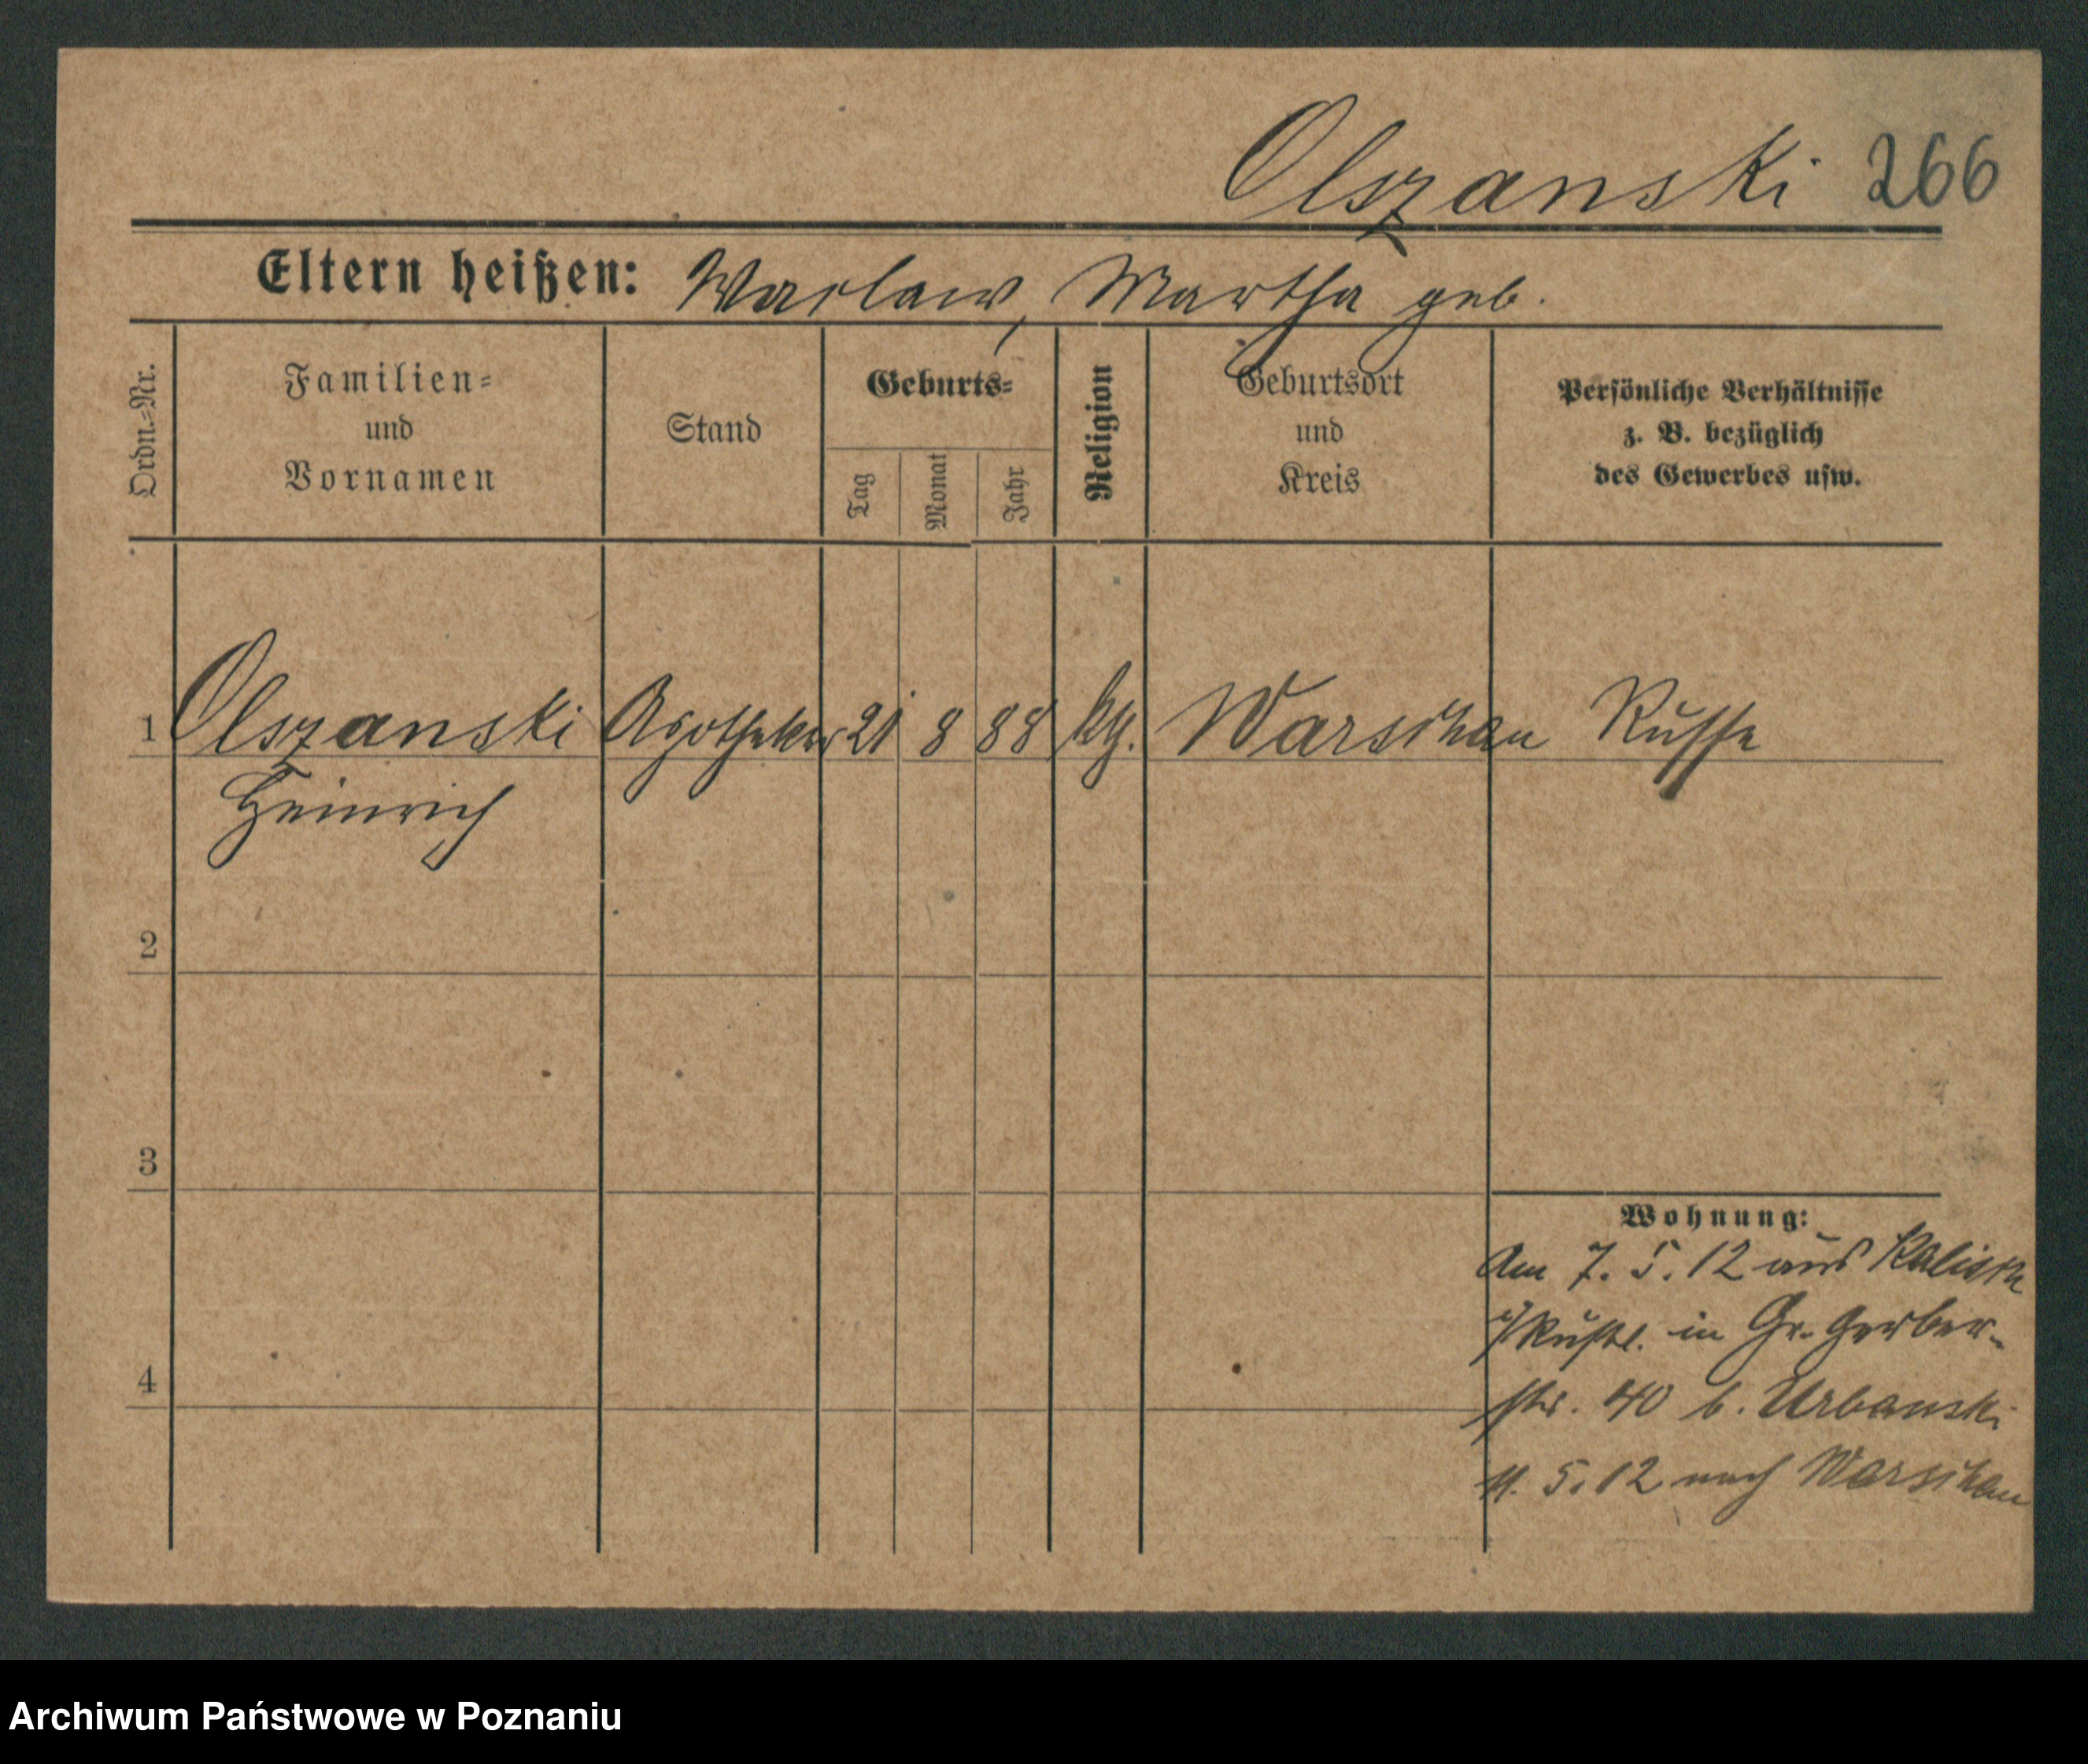 Olszanski 266
Eltern heißen: Waclaw, Martha geb.
Ordn.=Nr.
Familien=
und
Vornamen
Stand
Geburts=
Tag
Monat
Jahr
Religion
Geburtsort
und
Kreis
Persönliche Verhältnisse
z. B. bezüglich
des Gewerbes usw.
1 Olszanski Apotheker 21 8 88 kth. Warschau Russe
Heinrich
2
3
Wohnung:
Am 7. 5. 12 aus Kalisch
i/Russl. in Gr. Gerber-
4
str. 40 b. Urbanski
5. 12 nach Warschau
Archiwum Państwowe w Poznaniu